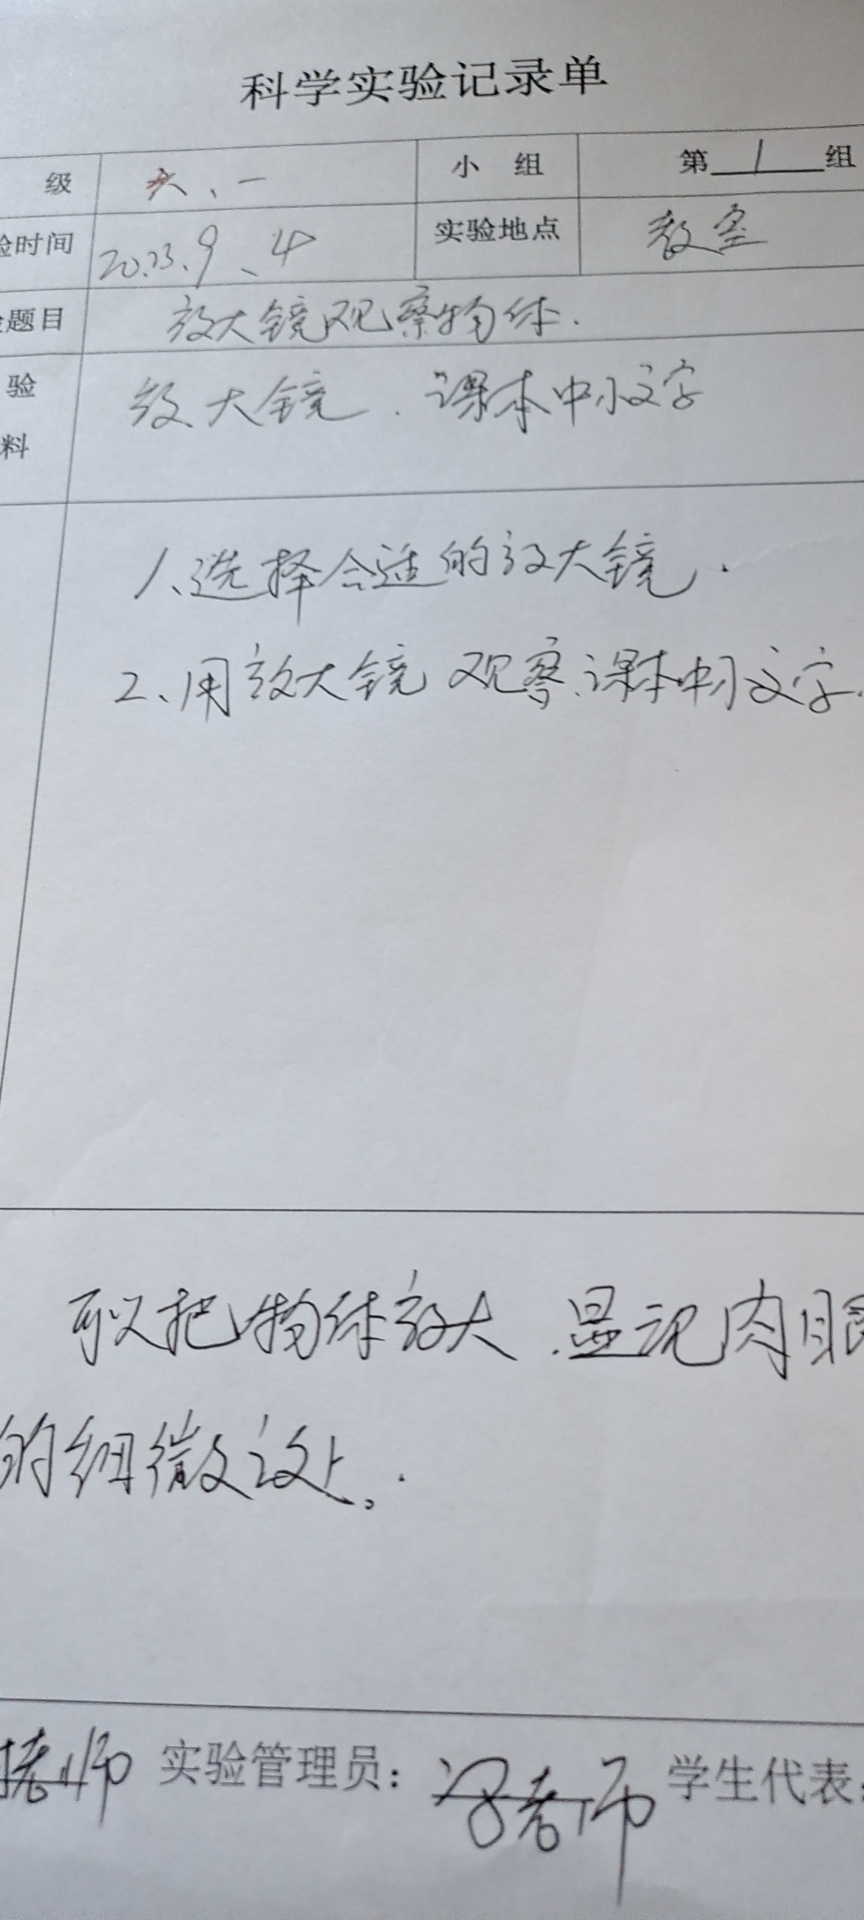 科学实验记录单
级 六、一 小 组 第 1 组
验时间 2023.9、4 实验地点 教室
题目 放大镜观察物体.
验
料 放大镜.课本中小文字
1、选择合适的放大镜.
2、用放大镜观察课本中小文字.
可以把物体放大.显现肉眼
的细微之处。.
老师 实验管理员: 老师 学生代表: